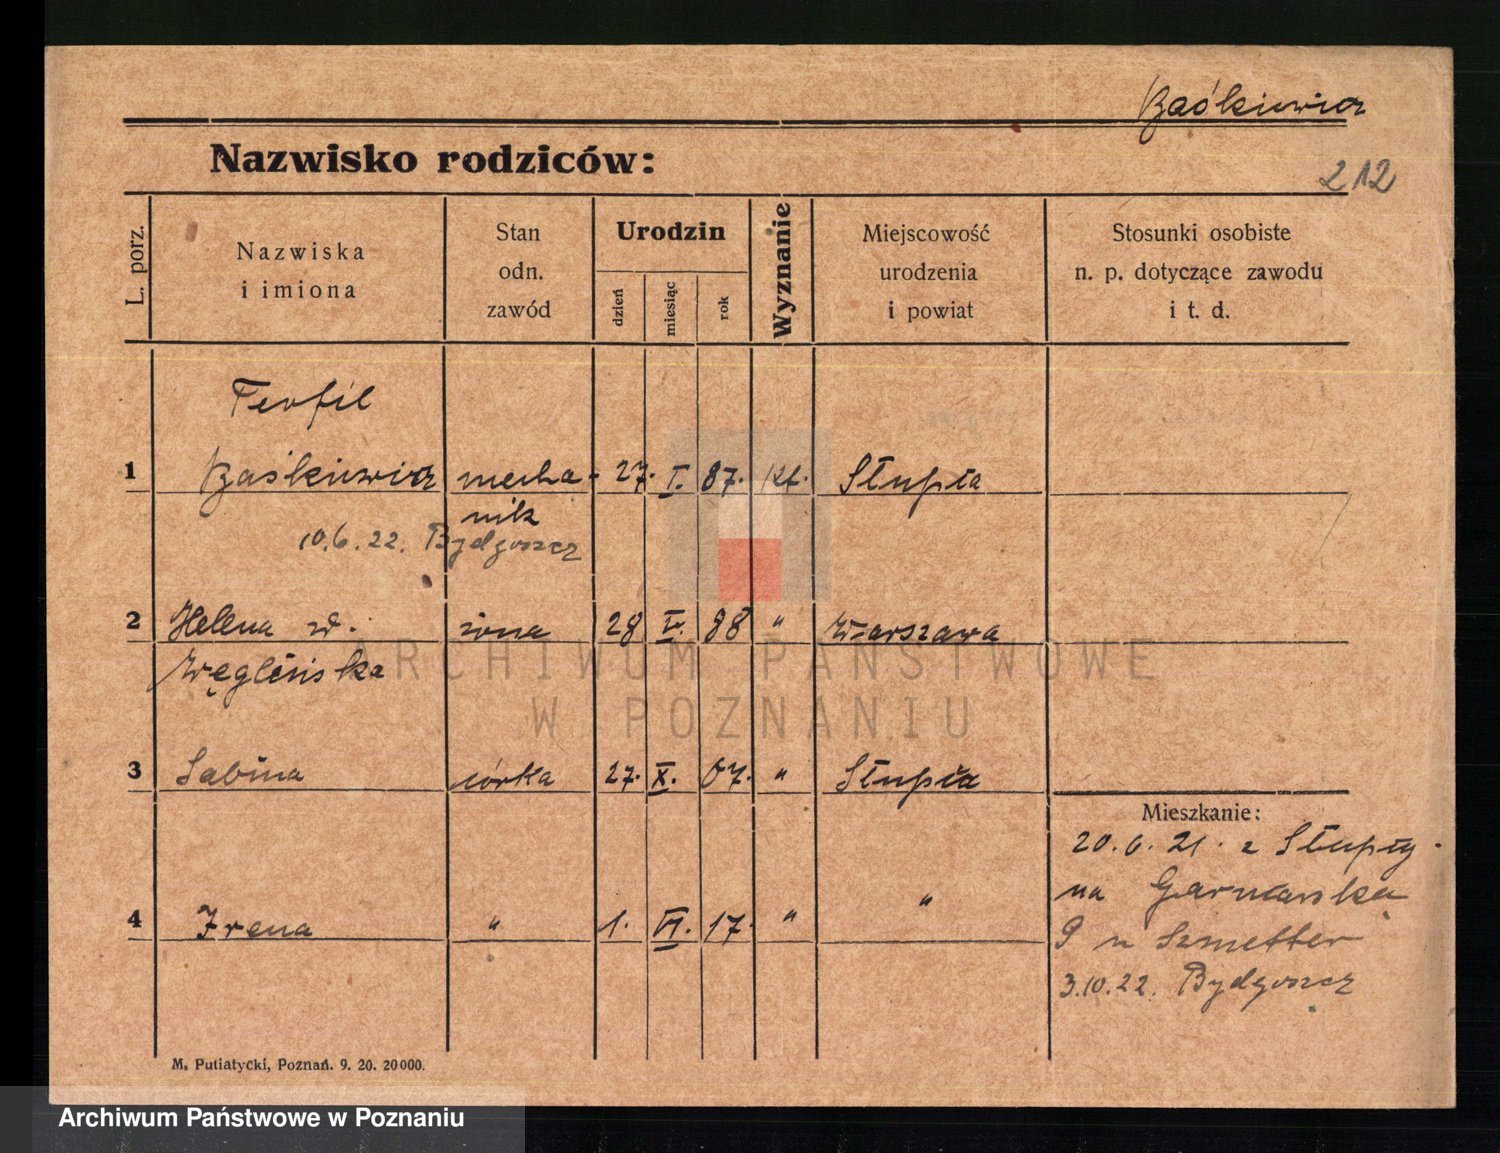 Baśkiewicz
Nazwisko rodziców:
212
L. porz.
Nazwiska
i imiona
Stan
odn.
zawód
Urodzin
dzień
miesiąc
rok
Wyznanie
Miejscowość
urodzenia
i powiat
Stosunki osobiste
n. p. dotyczące zawodu
i t. d.
Teofil
1 Baśkiewicz mecha- 27. I. 87. kt. Słupia
nik
10.6.22. Bydgoszcz
2 Helena zd. żona 28 V. 88 " Warszawa
Węglińska
3 Sabina córka 27. X. 07. " Słupia
Mieszkanie:
20.6.21. z Słupcy
na Garncarska
4 Irena " 1. VI. 17. " "
9 u Szmetter
3.10.22. Bydgoszcz
M. Putiatycki, Poznań. 9. 20. 20000.
ARCHIWUM PAŃSTWOWE
W POZNANIU
Archiwum Państwowe w Poznaniu